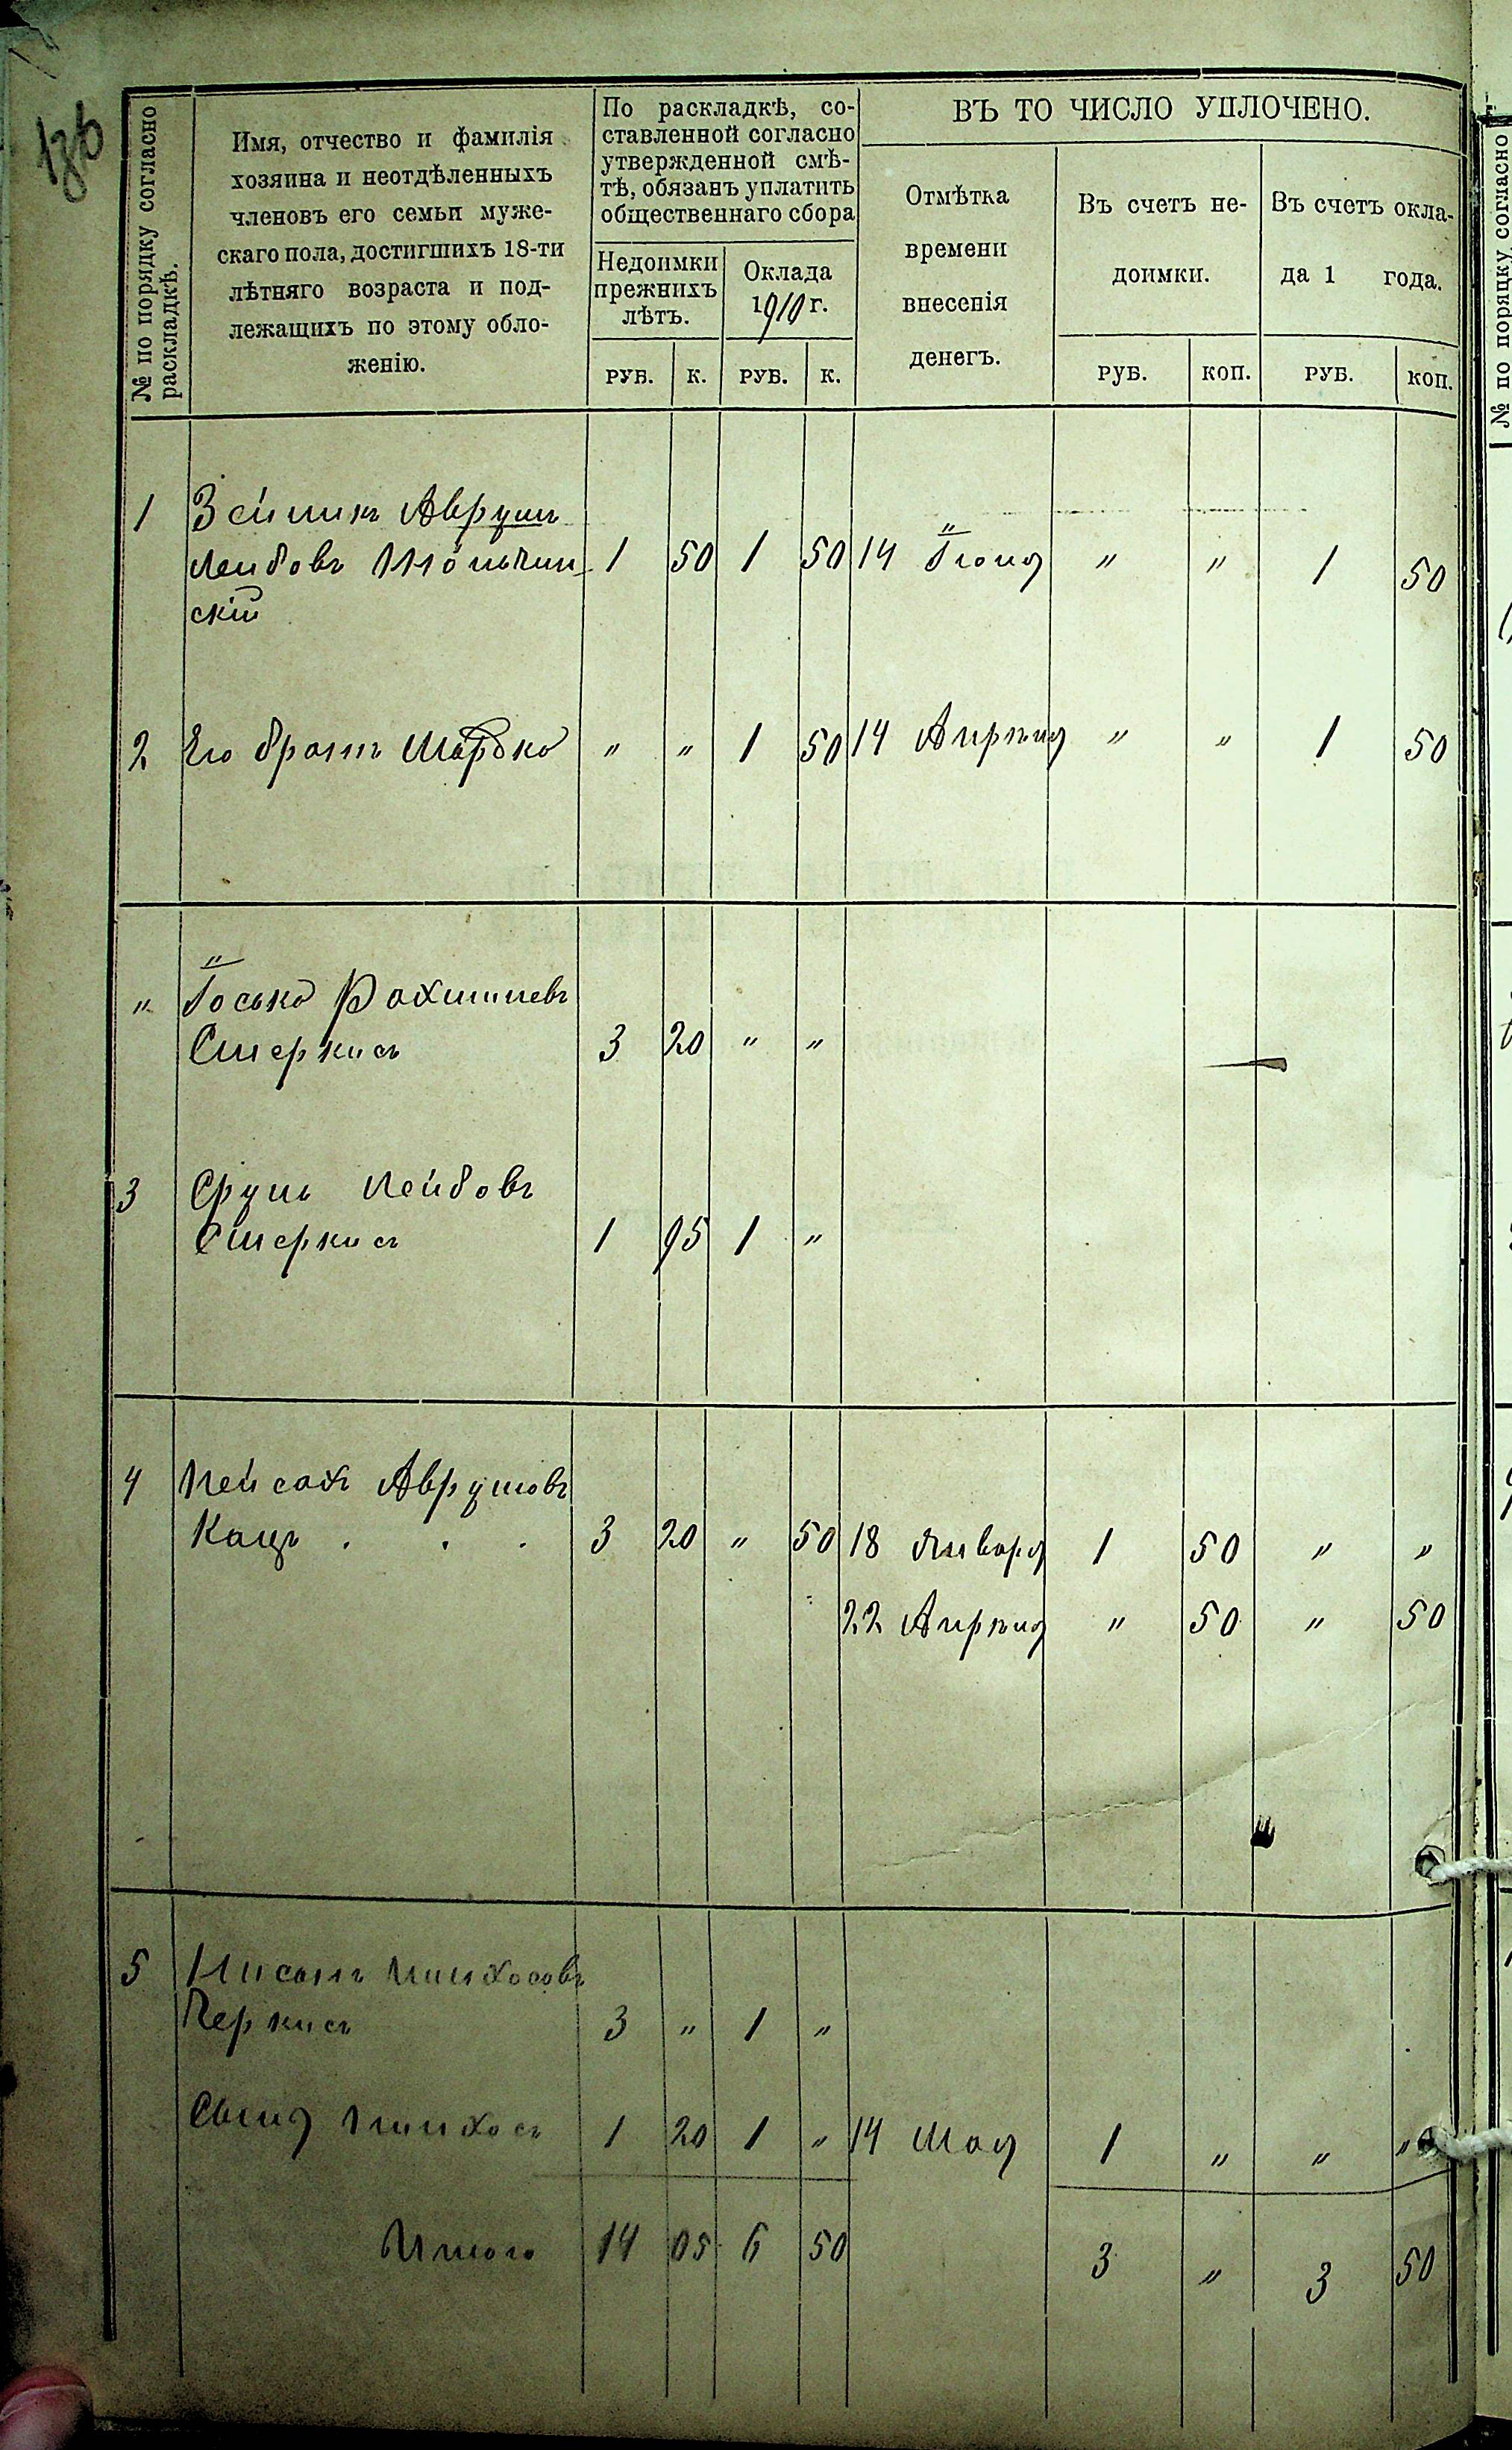 № по порядку согласно раскладкѣ.
Имя, отчество и фамилія
хозяина и неотдѣленныхъ
членовъ его семьи муже-
скаго пола, достигшихъ 18-ти
лѣтняго возраста и под-
лежащихъ по этому обло-
женію.
По раскладкѣ, со-
ставленной согласно
утвержденной смѣ-
тѣ, обязанъ уплатить
общественнаго сбора
Недоимки
прежнихъ
лѣтъ.
Оклада
1910 г.
РУБ. К. РУБ. К.
ВЪ ТО ЧИСЛО УПЛОЧЕНО.
Отмѣтка
времени
внесенія
денегъ.
Въ счетъ не-
доимки.
Въ счетъ окла-
да 1 года.
РУБ. КОП. РУБ. КОП.
1 Аврумъ
Лейбовъ 1 50 1 50 14 Іюня " " 1 50
скій
2 Его братъ Мордко " " 1 50 14 Апрѣля " " 1 50
" Іосько Рахмилевъ
Стеркисъ 3 20 " "
3 Сруль Лейбовъ
Стеркисъ 1 95 1 "
4 Пейсахъ Аврумовъ
Кацъ . . . 3 20 " 50 18 Января 1 50 " "
22 Апрѣля " 50 " 50
5 Нисонъ Пинхосовъ
Черкисъ 3 " 1 "
Сынъ Пинхосъ 1 20 1 " 14 Мая 1 " " "
Итого 14 05 6 50 3 " 3 50
№ по порядку согласно